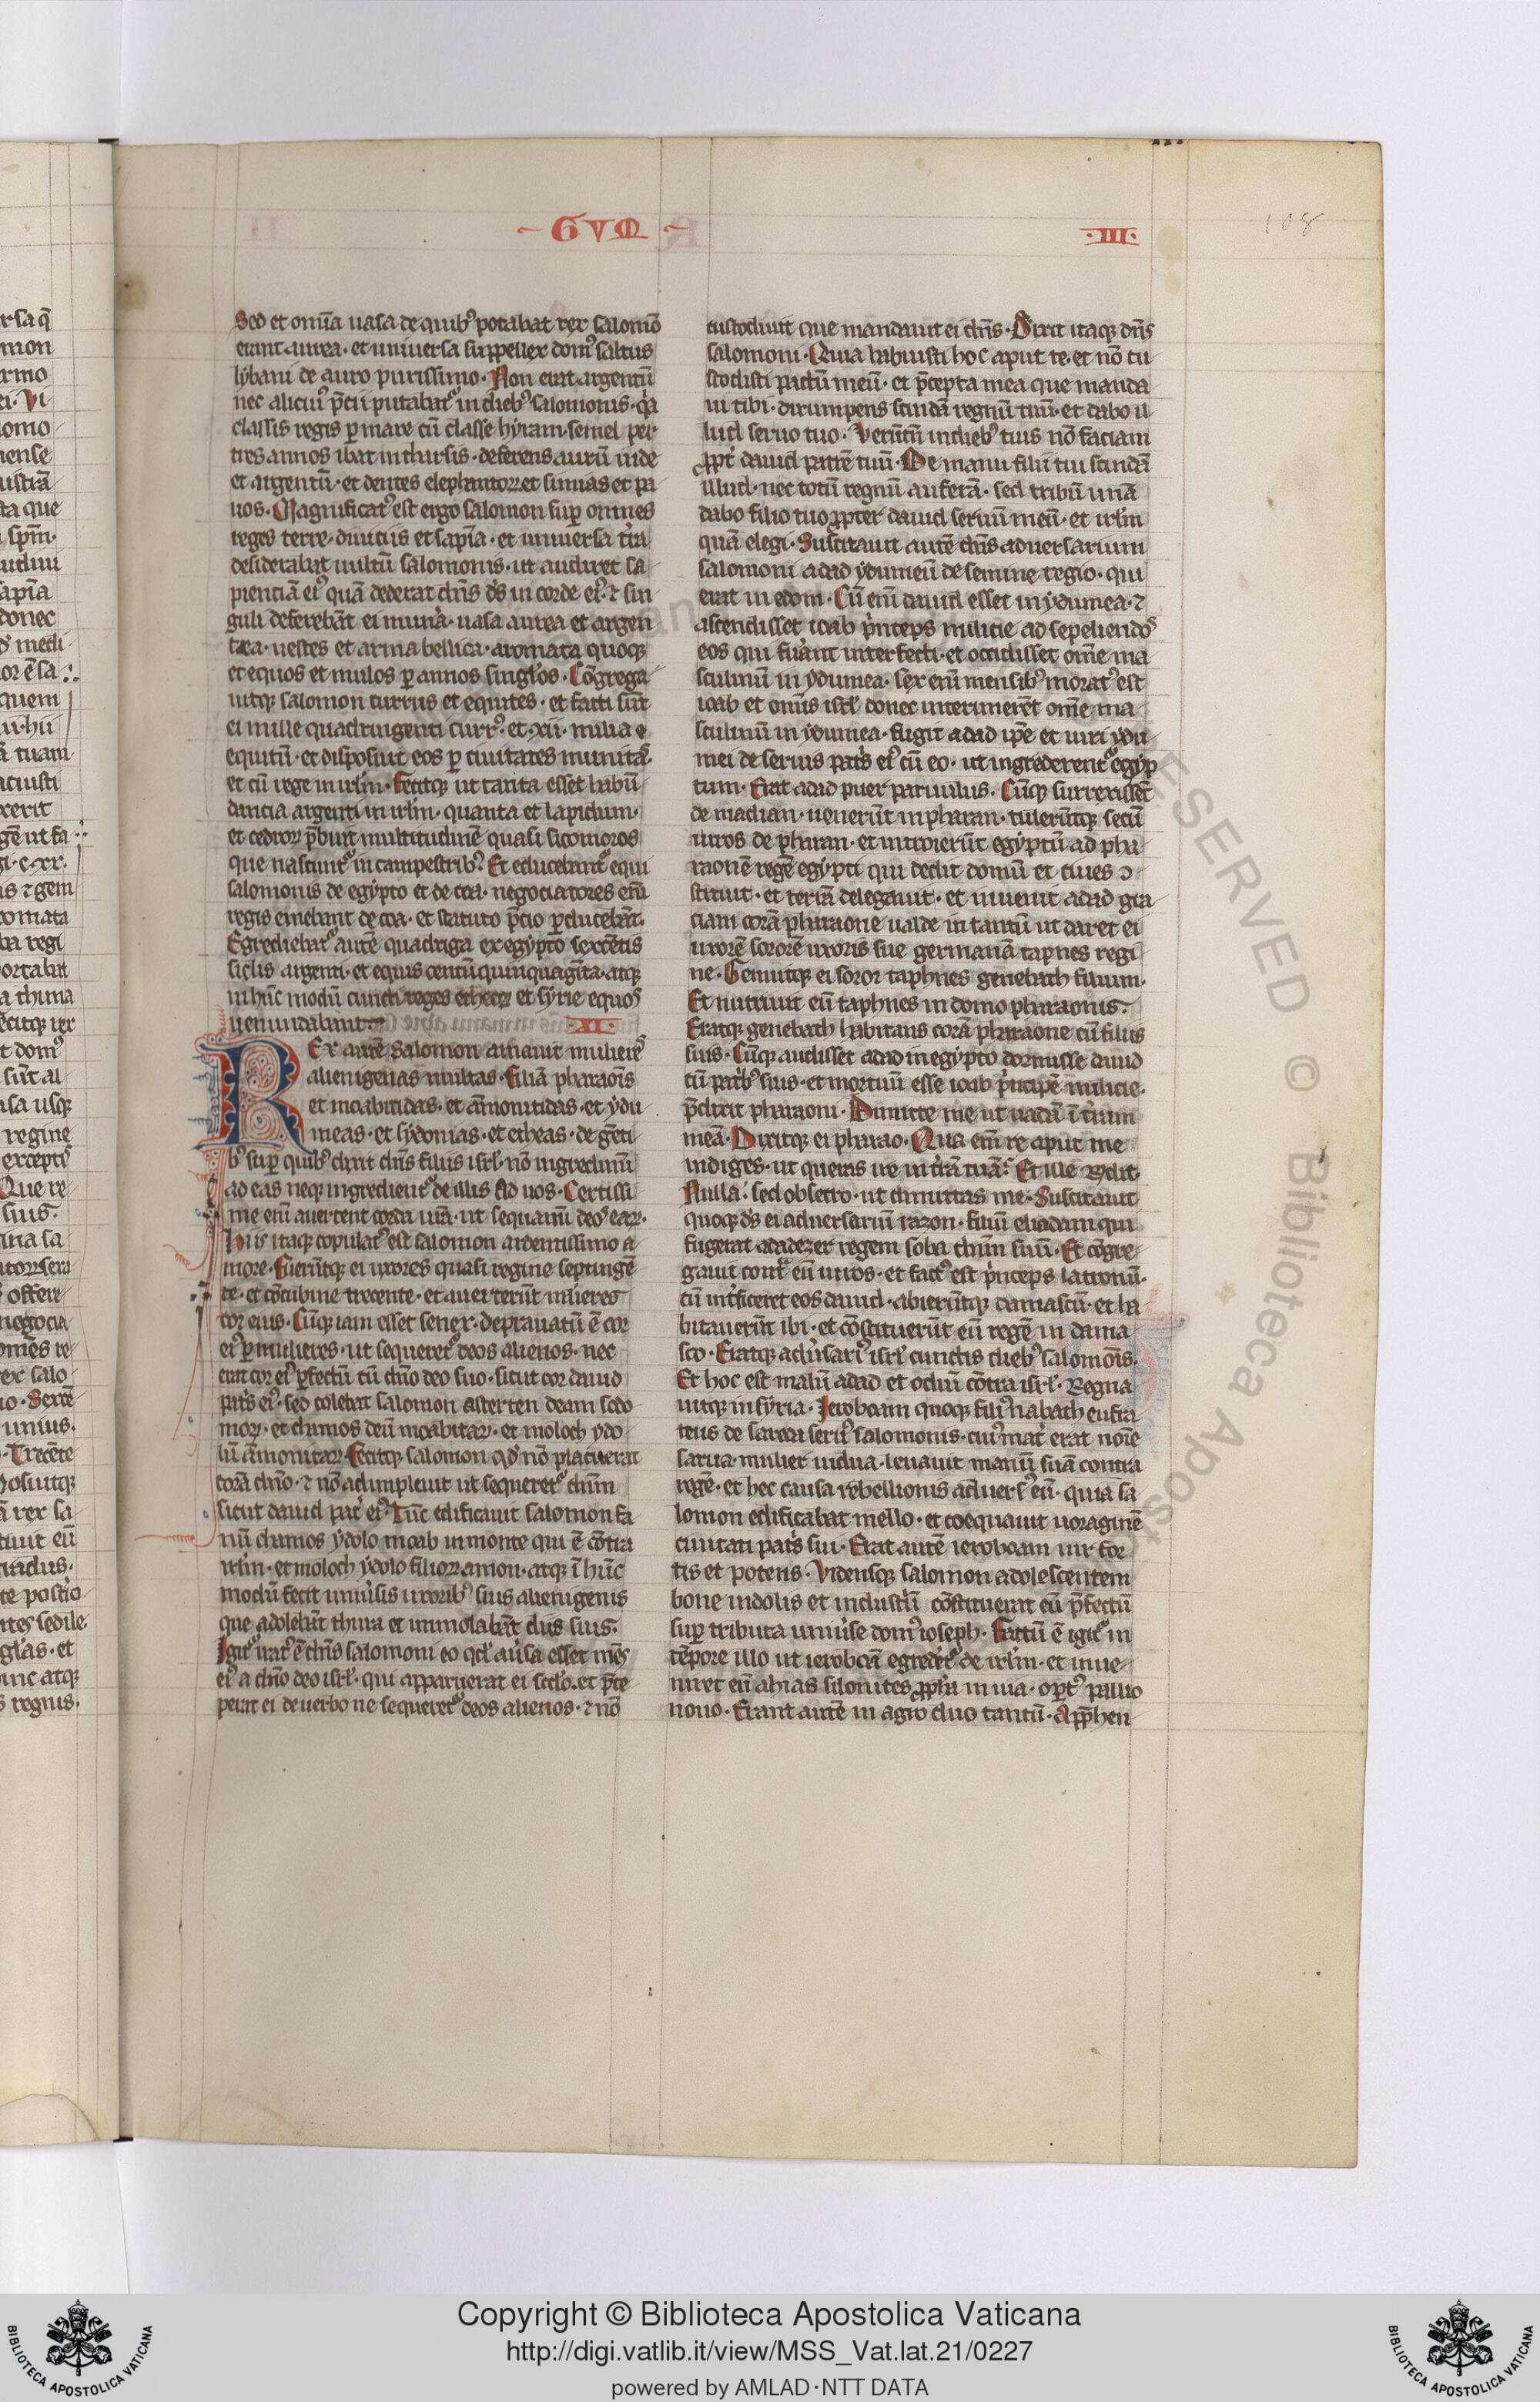 GVM
·III·
108
Sed et om̅ia uasa de quibꝰ potabat rex salomo̅
erant aurea · et uniuersa suppellex domꝰ saltus
lybani de auro purissimo · Non erat argentu̅
nec alicuiꝰ p̅cii putabatᷣ in diebꝰ salomonis · qꝛa
classis regis ꝑ mare cu̅ classe hyram · semel per
tres annos ibat in tharsis · deferens auru̅ inde
et argentu̅ · et dentes elephantoꝝ et simias et pa
uos · Magnificatꝰ est ergo salomon suꝑ omnes
reges terre · diuitiis et sapi̅a · et uniuersa t̓ra
desiderabat uultu̅ salomonis · ut audiret sa
pientia̅ eiꝰ qua̅ dederat dn̅s dꝰs in corde eiꝰ · ⁊ sin
guli defereba̅t ei mun̓a · uasa aurea et argen
tea · uestes et arma bellica · aromata quoqꝫ
et equos et mulos ꝑ annos singl̓os · Co̅grega
uitqꝫ salomon currus et equites · et facti su̅t
ei mille quadringenti currꝰ · et · xii · milia
equitu̅ · et disposuit eos ꝑ ciuitates munitas ·
et cu̅ rege in irl̅m · Fecitqꝫ ut tanta esset habu̅
dancia argenti in irl̅m · quanta et lapidum ·
et cedroꝝ p̅buit multitudine̅ quasi sicomoros
que nascuntᷣ in campestribꝰ · Et educebantᷣ equi
salomonis de egypto et de coa · negociatores eni̅
regis emebant de coa · et statuto p̅cio ꝑduceba̅t ·
Egrediebatᷣ aute̅ quadriga ex egypto sexce̅tis
siclis argenti · et equis centu̅quinquagi̅ta · atqꝫ
in hu̅c modu̅ cuncti reges etheoꝝ et syrie equos
uenundabant
·XI·
Rex aute̅ salomon amauit mulieres
alienigenas multas · Filia̅ pharaois̅
et moabitidas · et a̅monitidas · et ydu
meas · et sydonias · et etheas · de ge̅ti
bꝰ suꝑ quibꝰ dixit dn̅s filiis isrl̓ · no̅ ingredimi̅
ad eas neqꝫ ingredientᷣ de illis ad uos · Certissi
me eni̅ auertent corda ur̅a · ut sequami̅ deos eaꝝ ·
Hiis itaqꝫ copulatꝰ est salomon ardentissimo a
more · Fueru̅tqꝫ ei uxores quasi regine septinge̅
te · et co̅cubine trecente · et auerteru̅t mulieres
cor eius · Cu̅qꝫ iam esset senex · deprauatu̅ e̅ cor
eiꝰ ꝑ mulieres · ut sequeretᷣ deos alienos · nec
erat cor eiꝰ ꝑfectu̅ cu̅ dn̅o deo suo · sicut cor dauid
pat̓s eiꝰ · sed colebat salomon asterten deam sido
moꝝ · et chamos deu̅ moabitaꝝ · et moloch ydo
lu̅ a̅monitaꝝ · Fecitqꝫ salomon qd̓ no̅ placuerat
cora̅ dn̅o · ⁊ no̅ adimpleuit ut sequeretᷣ dn̅m
sicut dauid pat̓ eiꝰ · Tu̅c edificauit salomon fa
nu̅ chamos ydolo moab in monte qui e̅ co̅tra
irl̅m · et moloch ydolo filioꝝ amon · atqꝫ i̅ hu̅c
modu̅ fecit uniu̓sis uxoribꝰ suis alienigenis
que adoleba̅t thura et immolaba̅t diis suis ·
Igitᷣ iratꝰ e̅ dn̅s salomoni eo qd̓ au̓sa esset me̅s
eiꝰ a dn̅o deo isrl̓ · qui apparuerat ei scd̓o · et p̅ce
perat ei de uerbo ne sequeretᷣ deos alienos · ⁊ no̅
custodiuit que mandauit ei dn̅s · Dixit itaqꝫ dn̅s
salomoni · Quia habuisti hoc aput te · et no̅ cu
stodisti pactu̅ meu̅ · et p̅cepta mea que manda
ui tibi · dirumpens scinda̅ regnu̅ tuu̅ · et dabo il
lud seruo tuo · Veru̅t̅n in diebꝰ tuis no̅ faciam
ꝓpt̓ dauid patre̅ tuu̅ · De manu filii tui scinda̅
illud · nec totu̅ regnu̅ aufera̅ · sed tribu̅ una̅
dabo filio tuo ꝓpter dauid seruu̅ meu̅ · et irl̅m
qua̅ elegi · Suscitauit aute̅ dn̅s aduersarium
salomoni adad ydumeu̅ de semine regio · qui
erat in edom · Cu̅ eni̅ dauid esset in ydumea · ⁊
ascendisset ioab p̓nceps milicie ad sepeliendos
eos qui fu̓ant interfecti · et occidisset om̅e ma
sculinu̅ in ydumea · sex eni̅ mensibꝰ moratꝰ est
ioab et omi̅s isrl̓ donec interimere̅t om̅e ma
sculinu̅ in ydumea · fugit adad ip̅e et uiri ydu
mei de seruis pat̓s eiꝰ cu̅ eo · ut ingrederentᷣ egyp
tum · Erat adad puer paruulus · Cu̅qꝫ surrexisse̅t
de madian · ueneru̅t in pharan · tuleru̅tqꝫ secu̅
uiros de pharan · et introieru̅t egyptu̅ ad pha
raone̅ rege̅ egypti qui dedit domu̅ et ciues ↄ
stituit · et terra̅ delegauit · et inuenit adad gra
ciam cora̅ pharaone ualde in tantu̅ ut daret ei
uxore̅ sorore̅ uxoris sue germana̅ tapnes regi
ne · Genuitqꝫ ei soror taphnes genebath filium ·
Et nutriuit eu̅ taphnes in domo pharaonis ·
Eratqꝫ genebath habitans cora̅ pharaone cu̅ filiis
suis · Cu̅qꝫ audisset adad in egypto dormisse dauid
cu̅ pat̓bꝰ suis · et mortuu̅ esse ioab p̓ncipe̅ milicie ·
p̅dixit pharaoni · Dimitte me ut uada̅ i̅ t̓ram
mea̅ · Dixitqꝫ ei pharao · Qua eni̅ re aput me
indiges · ut queras ire in t̓ra̅ tua̅ · Et ille rn̅dit ·
Nulla · sed obsecro · ut dimittas me · Suscitauit
quoqꝫ dꝰs ei aduersariu̅ razon · filiu̅ eliadam qui
fugerat adadezer regem soba dn̅m suu̅ · Et co̅gre
gauit contᷓ eu̅ uiros · et factꝰ est p̓nceps latronu̅ ·
cu̅ int̓ficeret eos dauid · abieru̅tqꝫ damascu̅ · et ha
bitaueru̅t ibi · et co̅stitueru̅t eu̅ rege̅ in dama
sco · Eratqꝫ adu̓sariꝰ isrl̓ cunctis diebꝰ salomois̅ ·
Et hoc est malu̅ adad et odiu̅ co̅tra isrl̓ · Regna
uitqꝫ in syria · Ieroboam quoqꝫ filiꝰ nabath eufra
teus de sareda seruꝰ salomonis · cuiꝰ mat̓ erat noi̅e
sarua · mulier uidua · leuauit manu̅ sua̅ contra
rege̅ · et hec causa rebellionis aduersꝰ eu̅ · quia sa
lomon edificabat mello · et coequauit uoragine̅
ciuitati pat̓s sui · Erat aute̅ ieroboam uir for
tis et potens · Vidensqꝫ salomon adolescentem
bone indolis et industriu̅ co̅stituerat eu̅ p̅fectu̅
suꝑ tributa uniu̓se domꝰ ioseph · Factu̅ e̅ igitᷣ in
te̅pore illo ut ieroboa̅ egredet̓ᷣ de irl̅m · et inue
niret eu̅ ahias silonites ꝓph̓a in uia · opertꝰ pallio
nouo · Erant aute̅ in agro duo tantu̅ · Appᷣhen
Copyright © Biblioteca Apostolica Vaticana
http://digi.vatlib.it/view/MSS_Vat.lat.21/0227
powered by AMLAD·NTT DATA
BIBLIOTECA APOSTOLICA VATICANA
BIBLIOTECA APOSTOLICA VATICANA